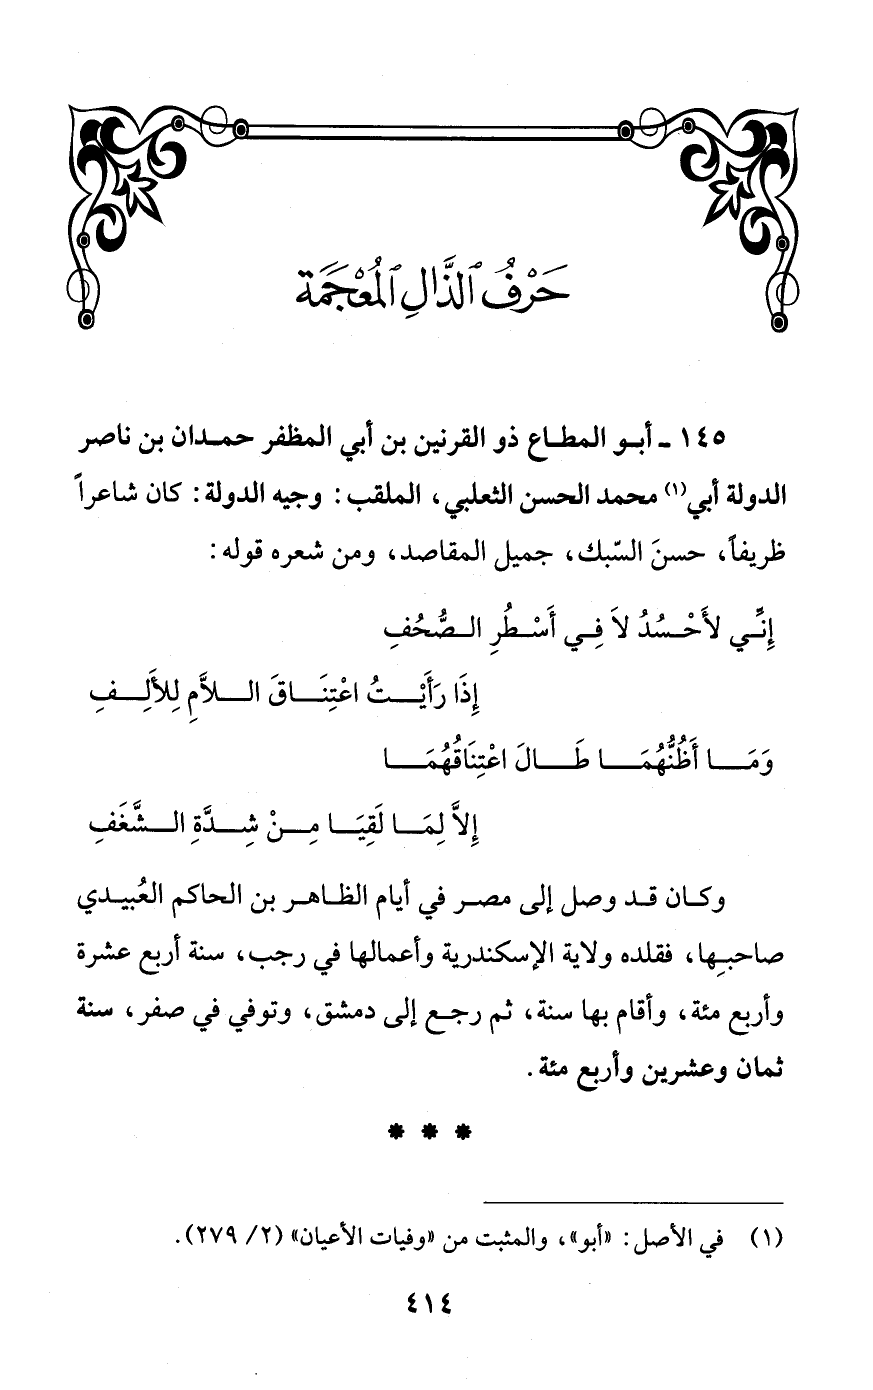 حَرْفُ ٱلذَّالِ ٱلْمُعْجَمَة
١٤٥ ـ أبـو المطـاع ذو القرنين بن أبي المظفر حمـدان بن ناصر
الدولة أبي(١) محمد الحسن الثعلبي، الملقب: وجيه الدولة: كان شاعراً
ظريفاً، حسنَ السّبك، جميل المقاصد، ومن شعره قوله:
إِنِّـي لأَحْـسُدُ لاَ فِـي أَسْـطُرِ الـصُّحُفِ
إِذَا رَأَيْـتُ اعْتِنَـاقَ الـلاَّمِ لِلأَلِـفِ
وَمَـا أَظُنُّهُمَـا طَـالَ اعْتِنَاقُهُمَـا
إِلاَّ لِمَـا لَقِيَـا مِـنْ شِـدَّةِ الـشَّغَفِ
وكـان قـد وصل إلى مصـر في أيام الظاهـر بن الحاكم العُبيـدي
صاحبِها، فقلده ولاية الإسكندرية وأعمالها في رجب، سنة أربع عشرة
وأربع مئة، وأقام بها سنة، ثم رجـع إلى دمشق، وتوفي في صفر، سنة
ثمان وعشرين وأربع مئة.
* * *
(١) في الأصل: «أبو»، والمثبت من «وفيات الأعيان» (٢/ ٢٧٩).
٤١٤